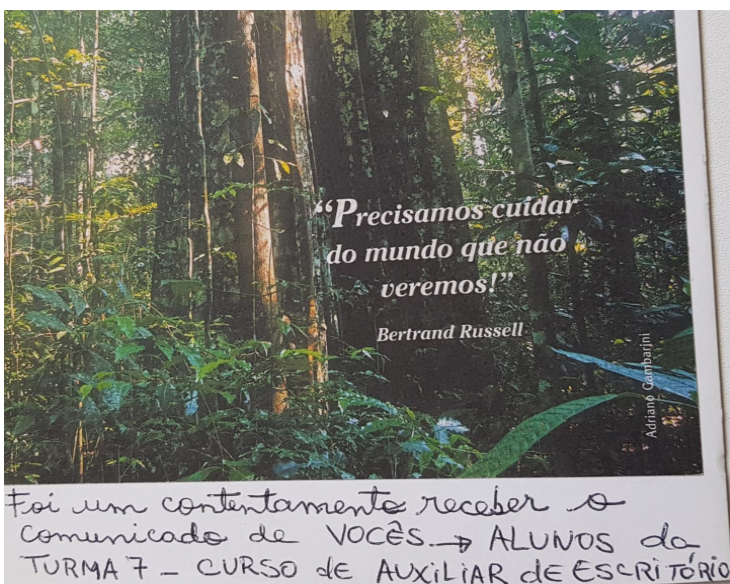 “Precisamos cuidar
do mundo que não
veremos!”
Bertrand Russell
Adriano Gambarini
Foi um contentamento receber o
comunicado de VOCÊS → ALUNOS da
TURMA 7 - CURSO de AUXILIAR de ESCRITÓRIO